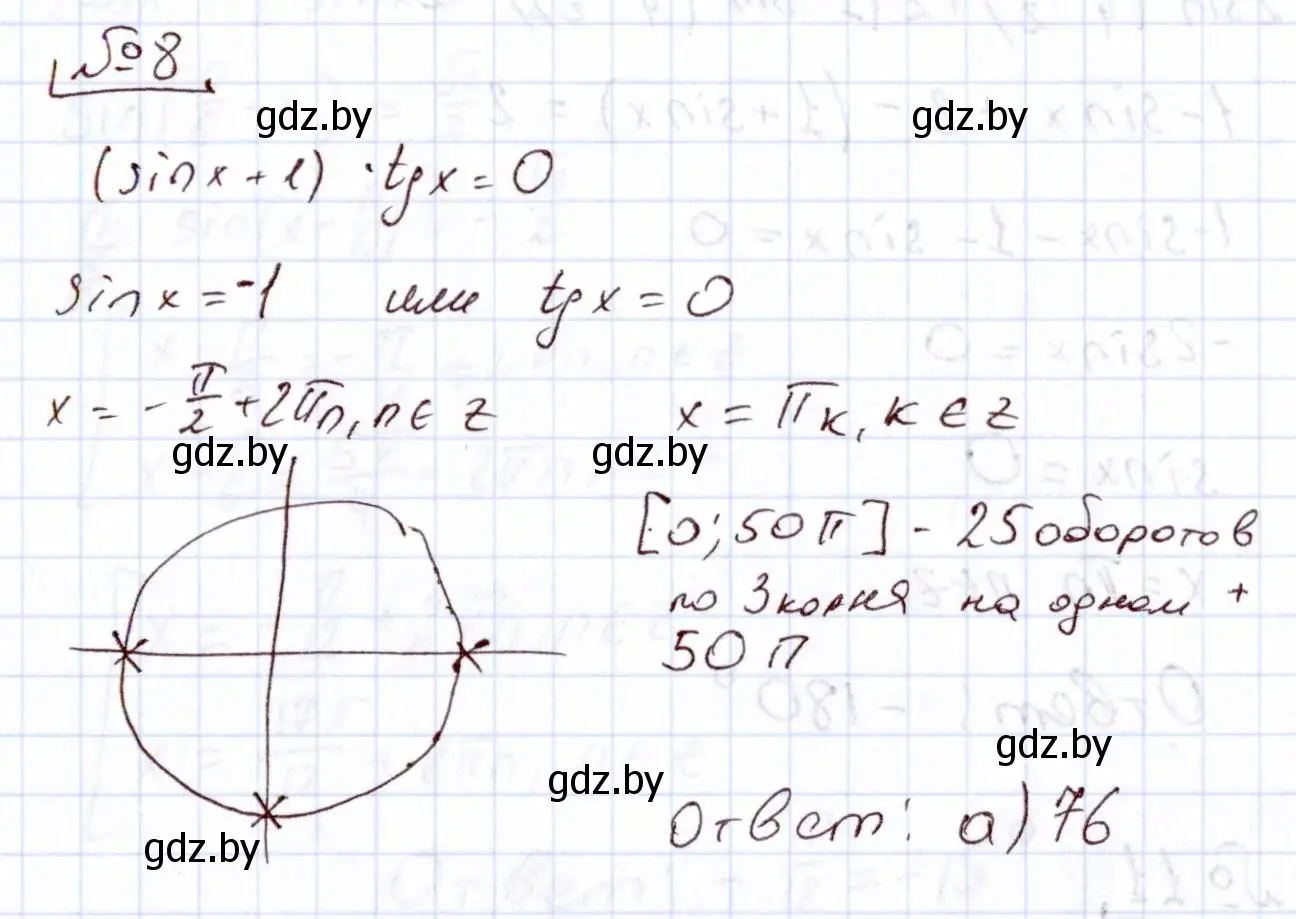 №8
gdz.by gdz.by
(sinx+1)·tgx=0
sinx=-1 или tgx=0
x=-π/2+2πn, n∈z x=πk, k∈z
gdz.by gdz.by
[0;50π] - 25 оборотов
по 3 корня на одном +
50π
gdz.by
gdz.by
Ответ: а) 76
gdz.by